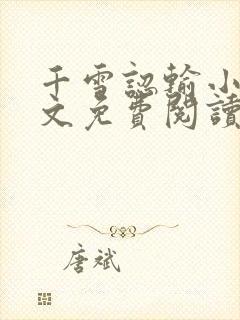 千雪認輸小
文免費閱讀
唐斌